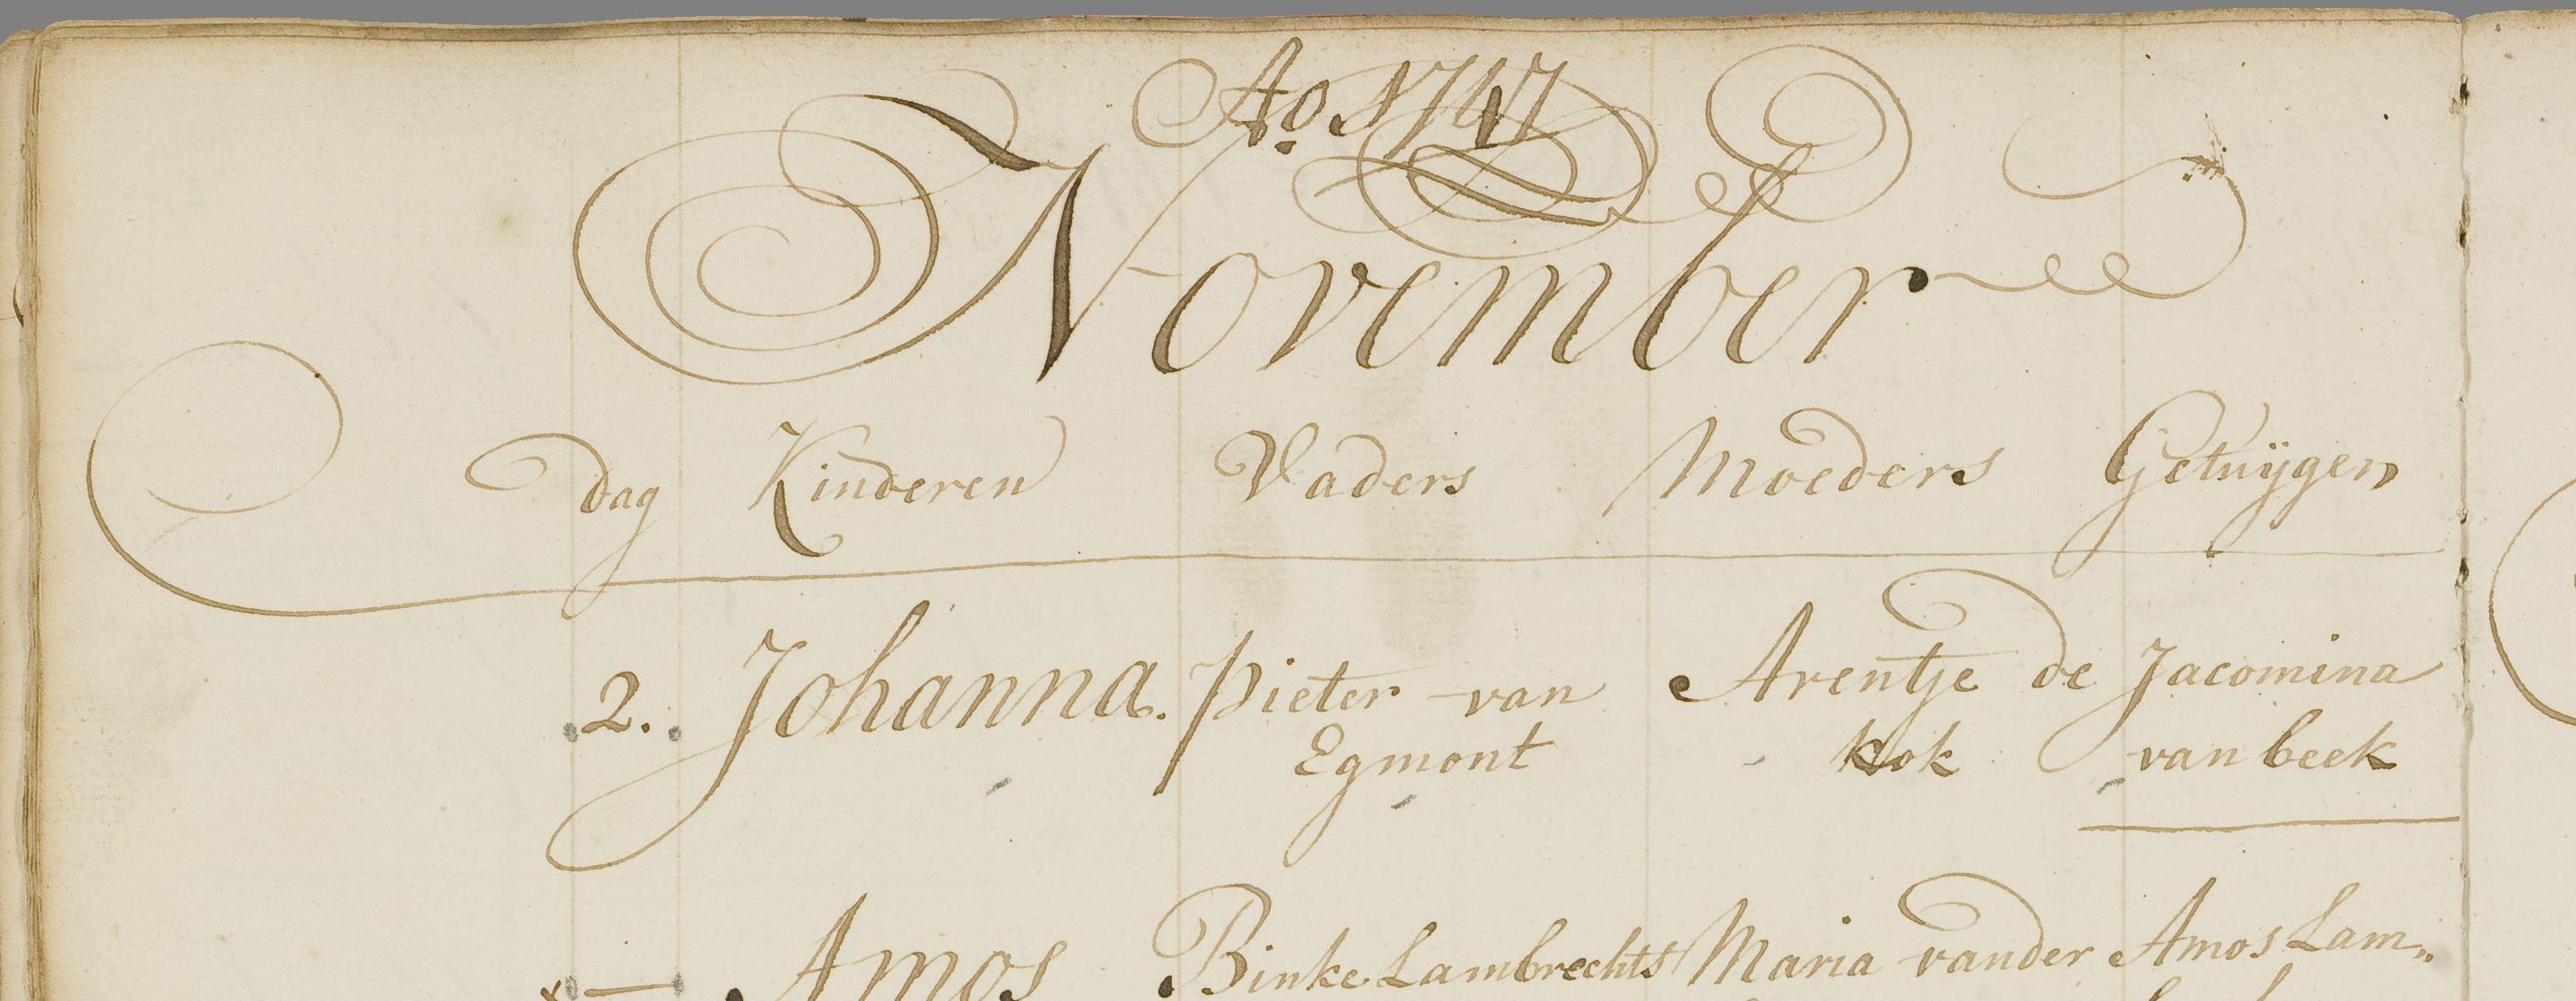 Ao. 1747
November
Dag Kinderen Vaders Moeders Getuijgen
2. Johanna. Pieter van Arentje de Jacomina
Egmont kok van beek
— Amos Binke Lambrechts Maria vander Amos Lam„